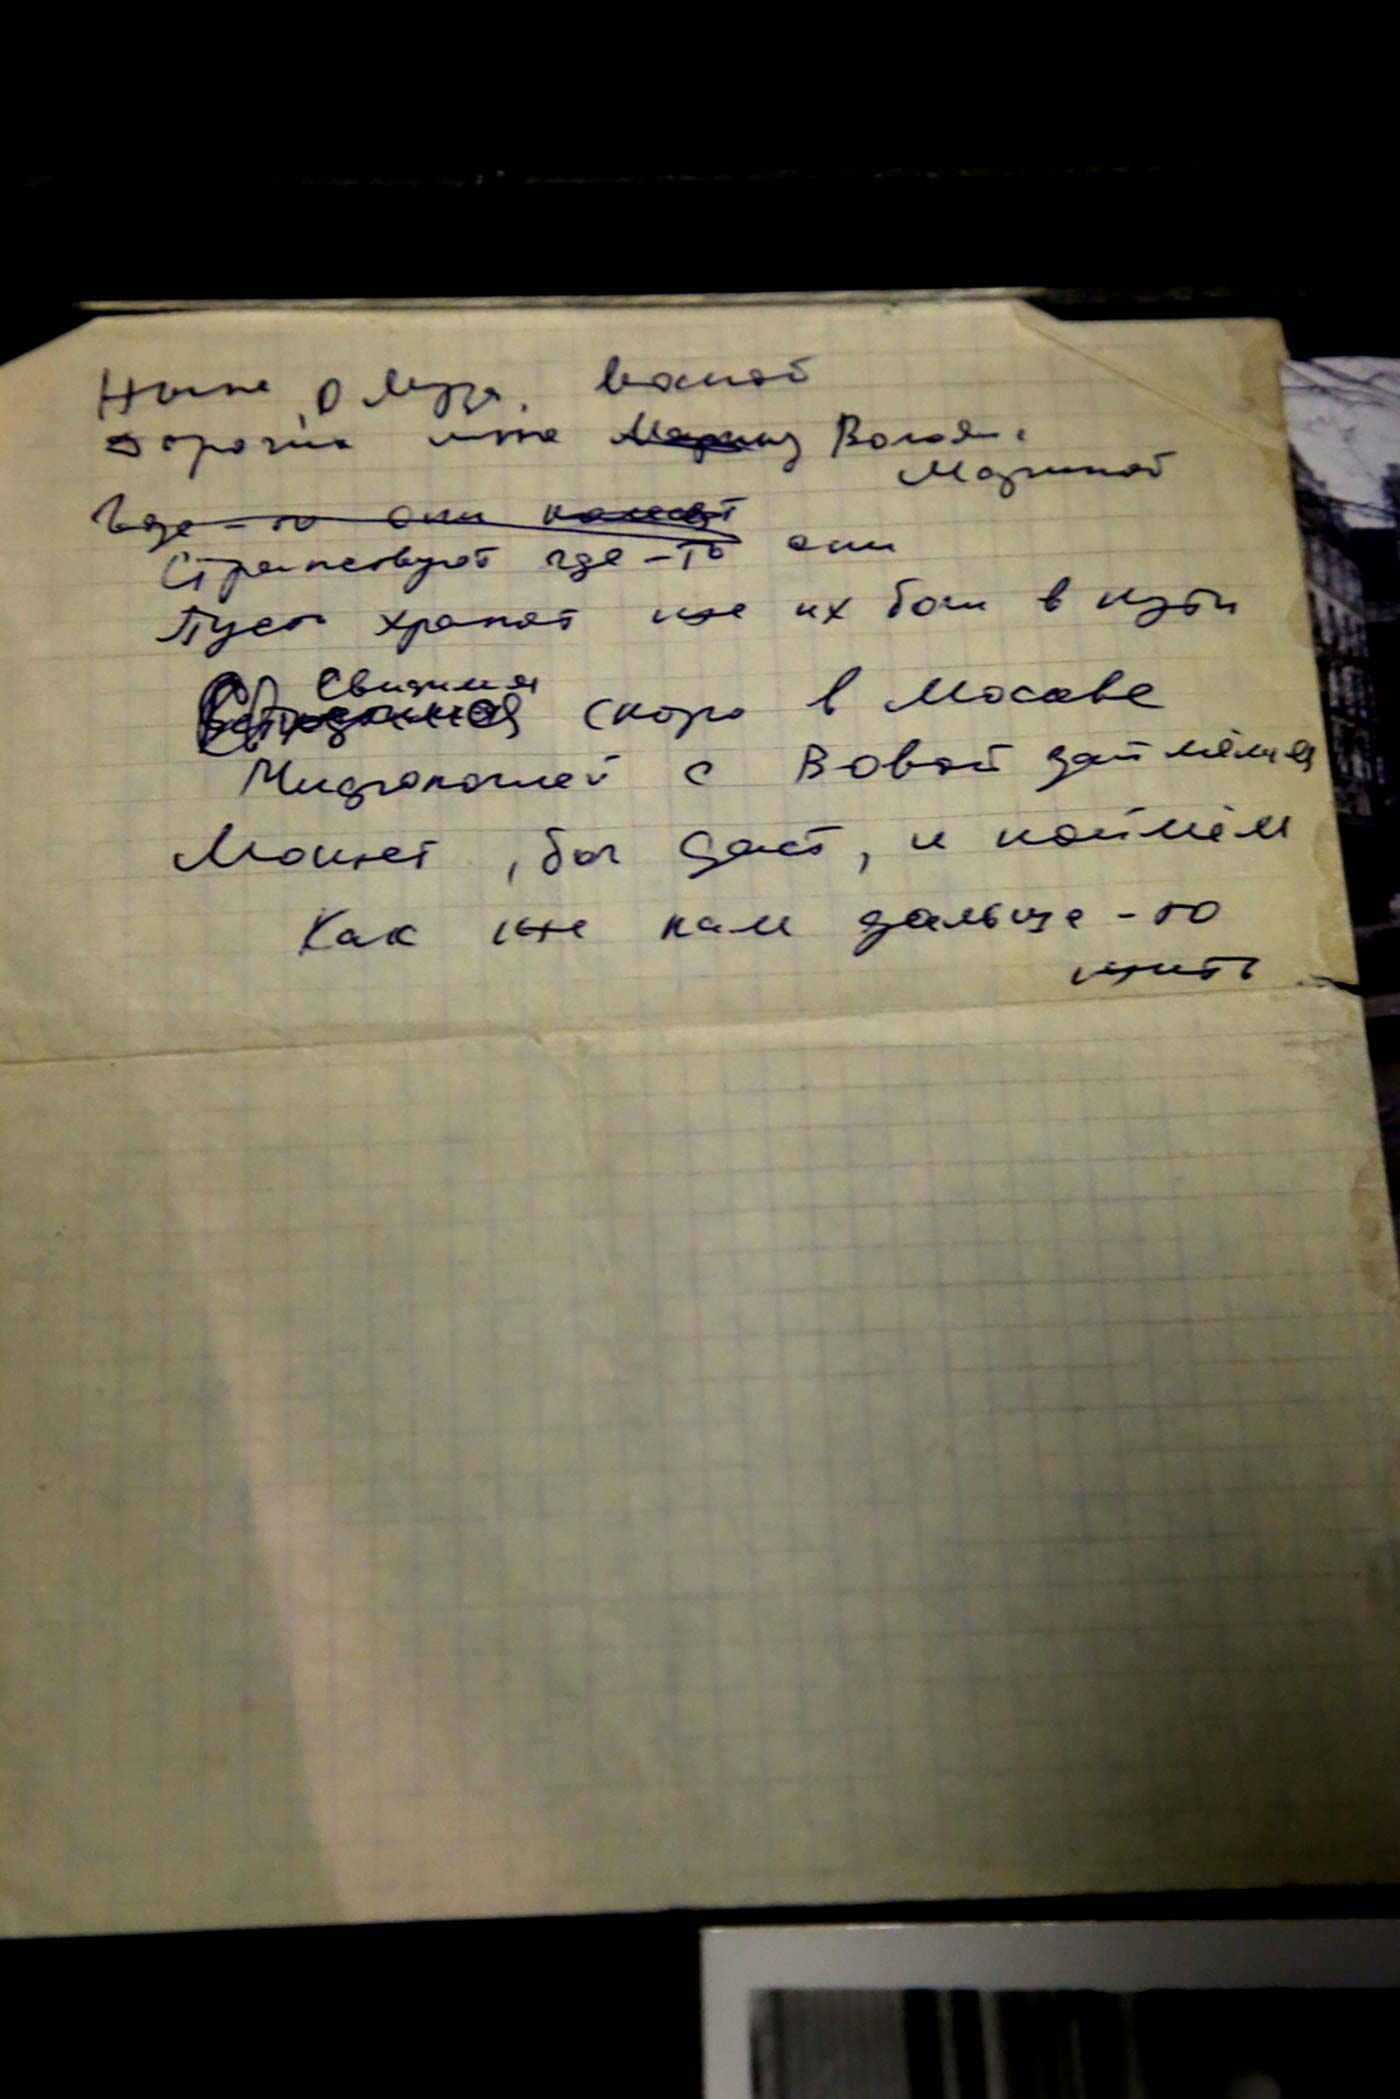 Ныне, о Муза, воспой
дорогих мне Марину Володю с
Мариной
Где-то они
Странствуют где-то они
Пусть хранят же их боги в пути
Свидимся
скоро в Москве
Мидраполией с Вовой займёмся
Может, бог даст, и поймём
Как же нам дальше-то
жить